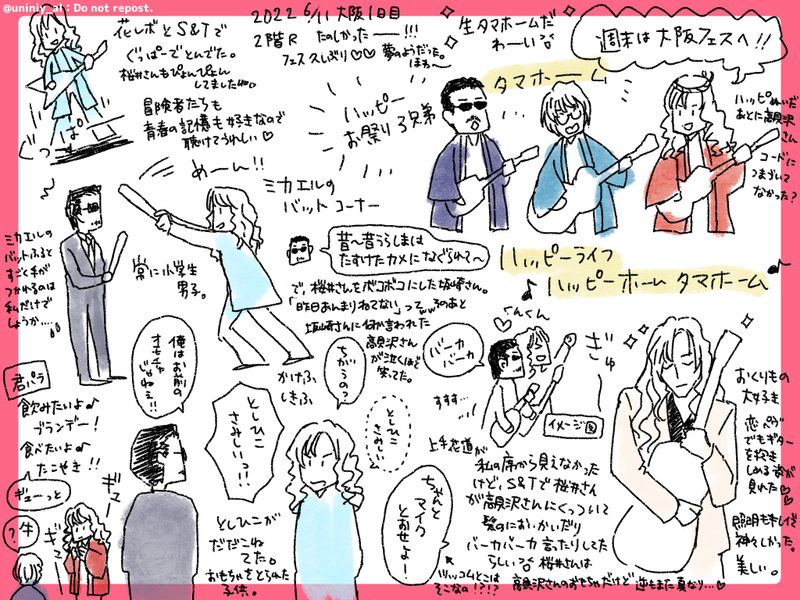 @uniniy_al : Do not repost.
花レボとS&Tで
ぐっぱーでとんでた。
桜井さんもぴょんぴょん
してました
冒険者たちも
青春の記憶も好きなので
聴けてうれしい♡
ぱっ
ぐっ
2022 6/11 大阪1日目
2階R たのしかったー!!!
フェス久しぶり♡♡ 夢のようだった。
ほわ〜
生タマホームだ
わーい
週末は大阪フェスへ!!
タマホーム
ハッピー
お祭り3兄弟
ハッピぬいだ
あとに高見沢
さん
コードに
つまづいて
なかった?
めーん!!
ミカエルの
バットコーナー
ミカエルの
バットふると
すごく手が
つかれるのは
私だけで
しょうか…
常に小学生
男子。
昔〜昔うらしまは
たすけたカメになぐられて〜
で、桜井さんをボコボコにした坂崎さん。
「昨日あんまりねてない」って
そのあと
坂崎さんに何か言われた
高見沢さん
が泣くほど
笑ってた。
ハッピーライフ
♪ ハッピーホーム タマホーム ♪
君パラ
飲みたいよ♪
ブランデー!
食べたいよ♪
たこやき!!
ギューっと
?牛
ギュー
俺はお前の
オモチャ
じゃねぇ!!
としひこ
さみしいっ!!
かけふ
しきふ
ちがうの?
としひこ
さみしい
としひこが
だだこね
てた。
おもちゃをとられた
子供。
ちゃんと
マイク
とおせよー
ツッコむとこは
そこなの!?!?
バーカ
バーカ
くんくん
すすす…
イメージ図
ぎゅ
上手花道が
私の席から見えなかった
けど、S&Tで桜井さん
が高見沢さんにくっついて
髪のにおいかいだり
バーカバーカ言ったりしてた
らしい 桜井さんは
高見沢さんのおもちゃだけど逆もまた真なり…♡
おくりもの
大好き
恋ペグ
でもギター
を抱き
しめる姿が
見れた♡
照明もキレイで
神々しかった。
美しい。